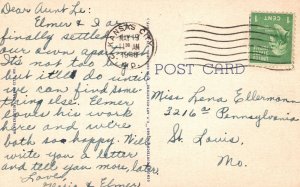 Dear Aunt Le:
Elmer & I are
finally settled in
our own apartment.
It's not too big
but it'll do until
we can find some-
thing else. Elmer
loves his work
here and we're
both so happy. Will
write you a letter
and tell you more, later.
Love,
Marie & Elmer
KANSAS CITY
MAY 19
11 30 AM
MO.
1 CENT 1
POST CARD
Miss Lena Ellermann
3216a Pennsylvania
St. Louis,
Mo.